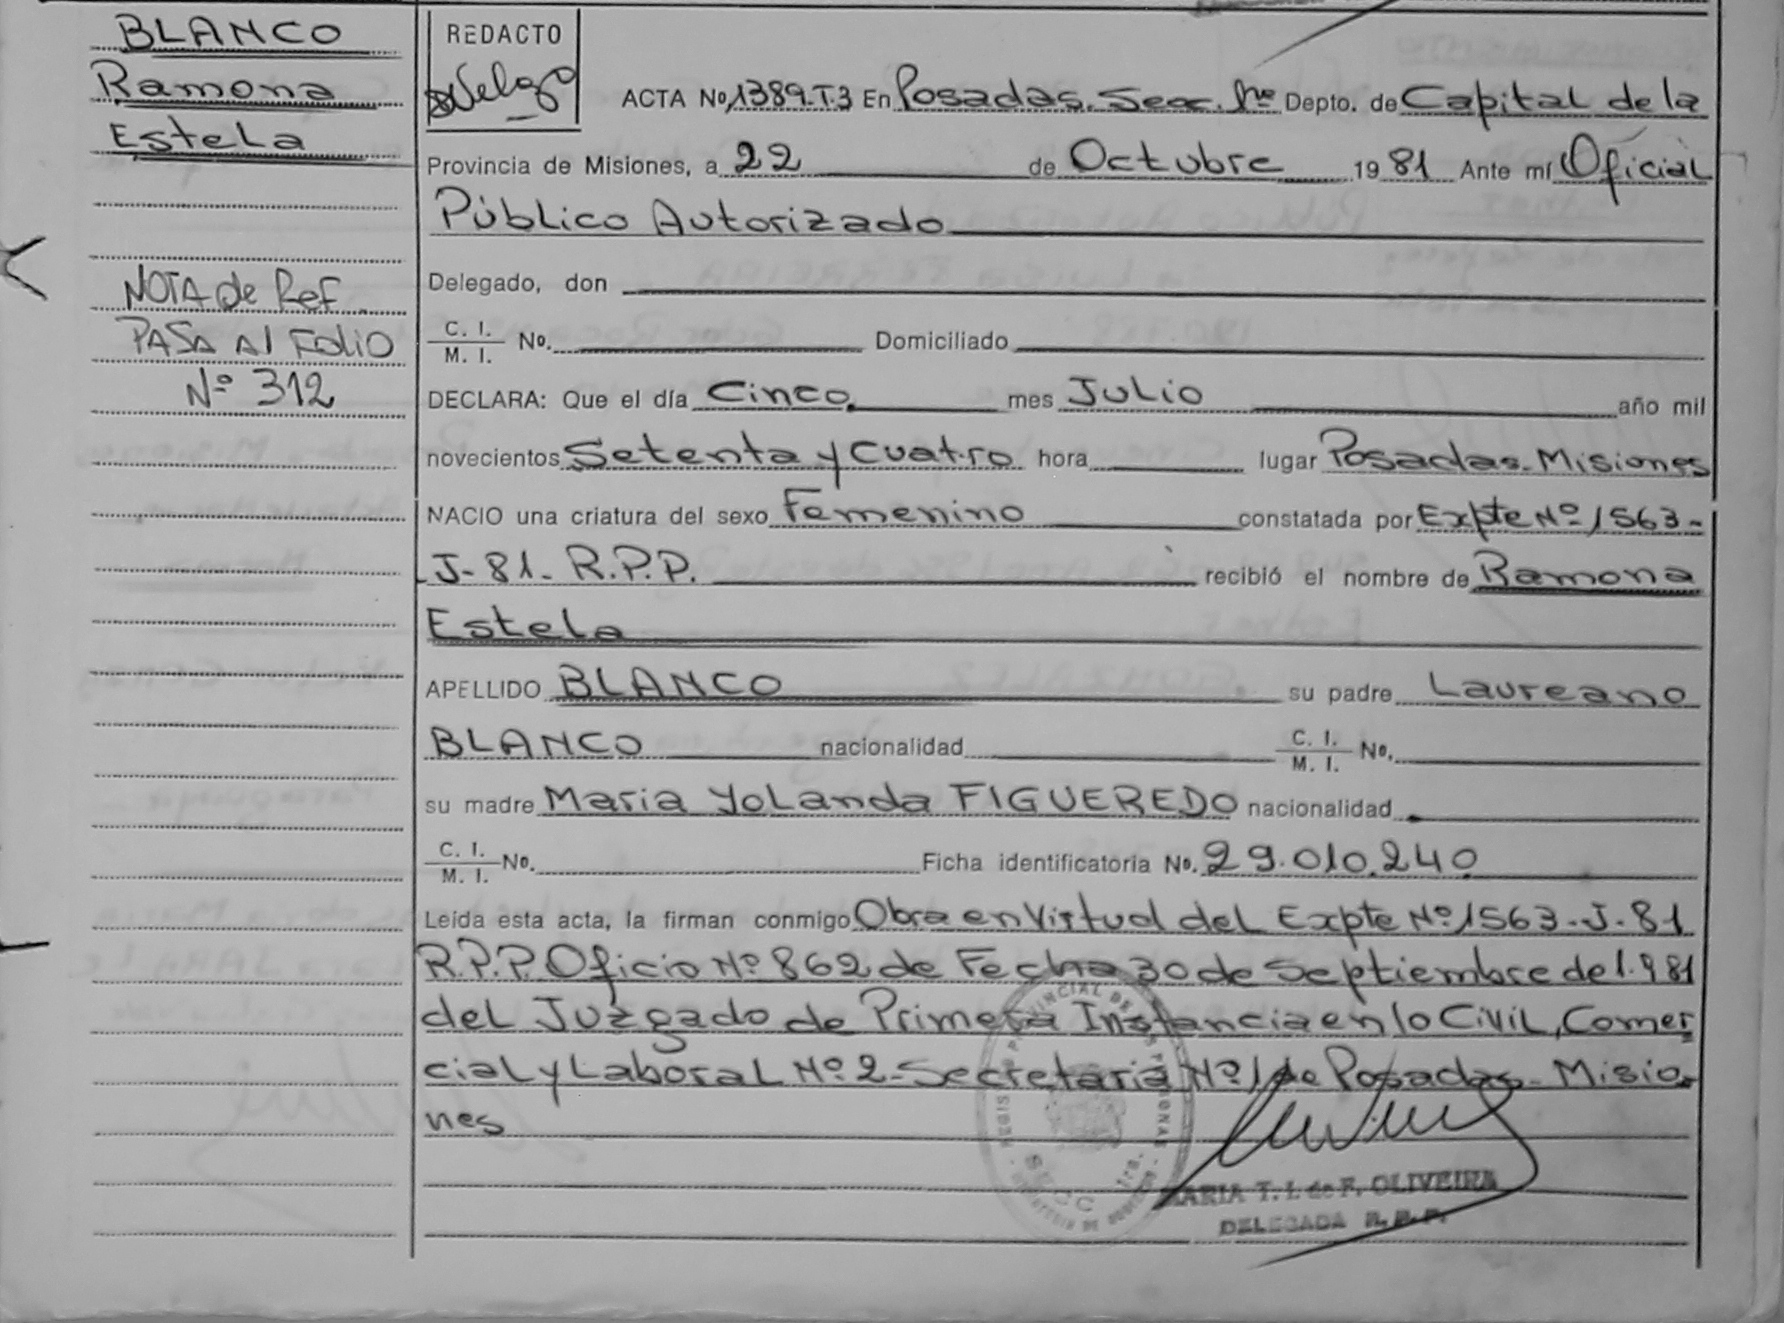 BLANCO
Ramona
Estela
NOTA de Ref.
PASA Al Folio
Nº 312
REDACTO
ACTA No, 1389.T.3 En Posadas. Secc. 1ra Depto. de Capital de la
Provincia de Misiones, a 22 de Octubre 19 81 Ante mí Oficial
Público Autorizado
Delegado, don
C. I. / M. I. No. Domiciliado
DECLARA: Que el día Cinco mes Julio año mil
novecientos Setenta y Cuatro hora lugar Posadas. Misiones
NACIO una criatura del sexo Femenino constatada por Expte Nº 1563-
J-81- R.P.P. recibió el nombre de Ramona
Estela
APELLIDO BLANCO su padre Laureano
BLANCO nacionalidad C. I. / M. I. No.
su madre Maria Yolanda FIGUEREDO nacionalidad
C. I. / M. I. No. Ficha identificatoria No. 29.010.240
Leída esta acta, la firman conmigo Obra en Virtud del Expte Nº 1563-J-81
R.P.P. Oficio Nº 862 de Fecha 30 de Septiembre de 1.981
del Juzgado de Primera Instancia en lo Civil, Comer
cial y Laboral Nº 2- Secretaria Nº 1 de Posadas- Misio-
nes
MARIA T. I. de F. OLIVEIRA
DELEGADA R. P. P.